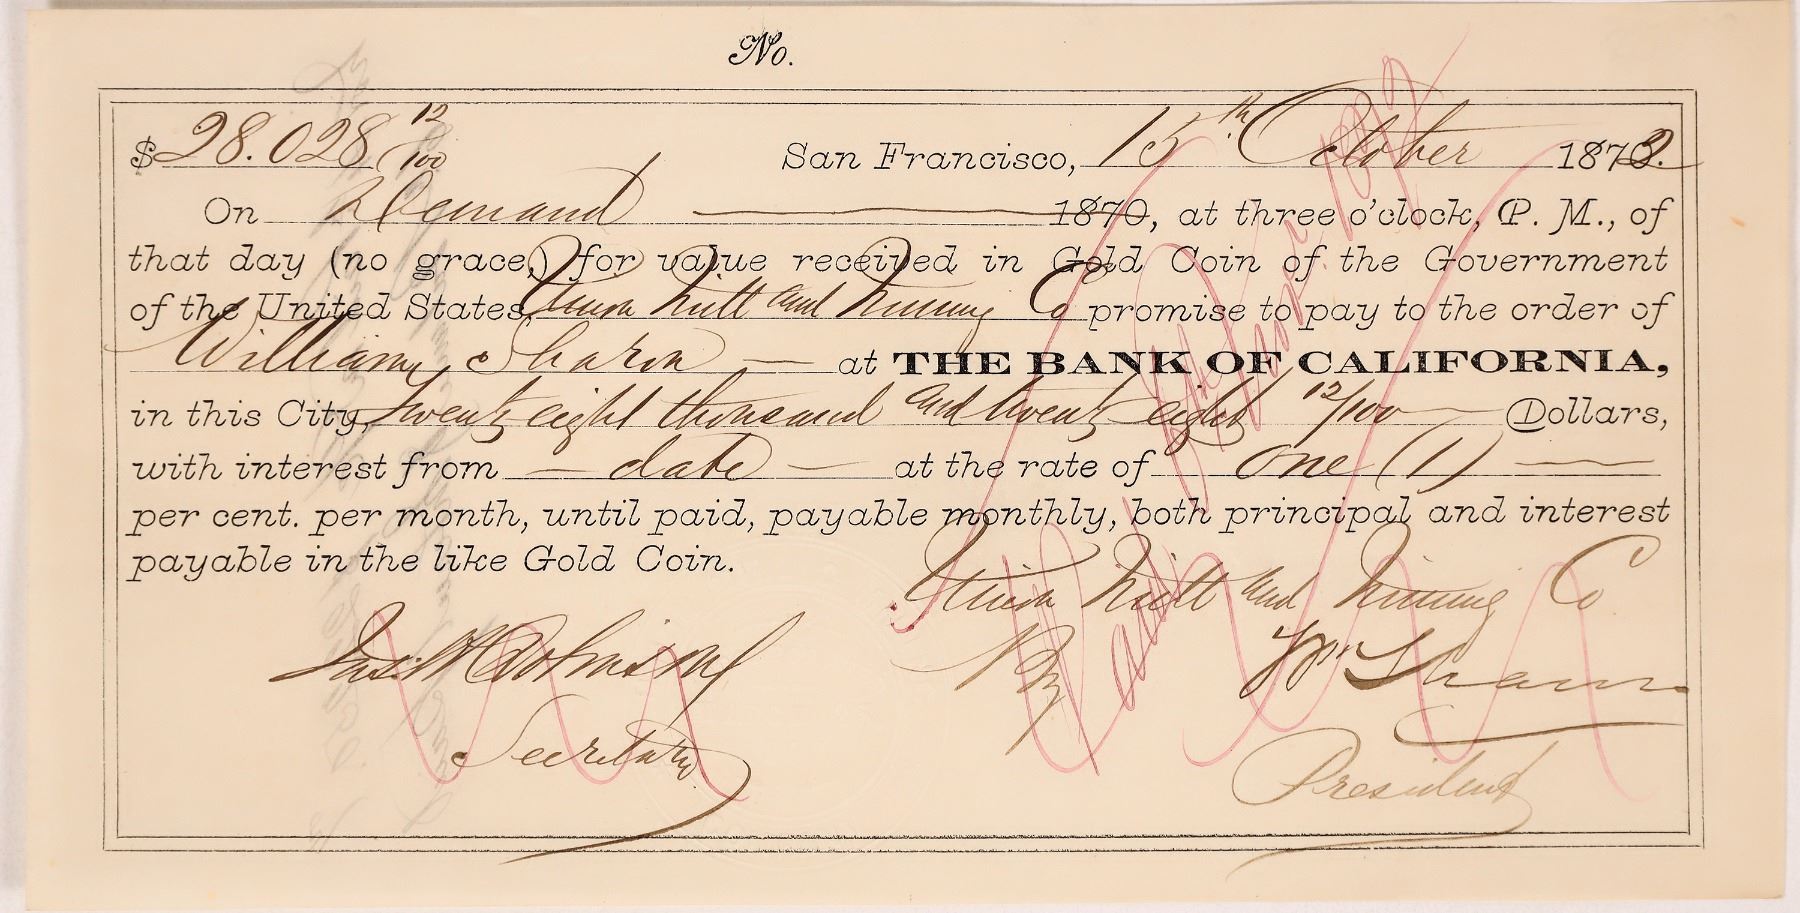 No.
$28.028 12/100 San Francisco, 15th October 1872.
On Demand 1870, at three o'clock, P. M., of
that day (no grace,) for value received in Gold Coin of the Government
of the United States, Union Mill and Mining Co promise to pay to the order of
William Sharon at THE BANK OF CALIFORNIA,
in this City, twenty eight thousand and twenty eight 12/100 Dollars,
with interest from date at the rate of one (1)
per cent. per month, until paid, payable monthly, both principal and interest
payable in the like Gold Coin.
Union Mill and Mining Co
By Wm Sharon
President
Secretary